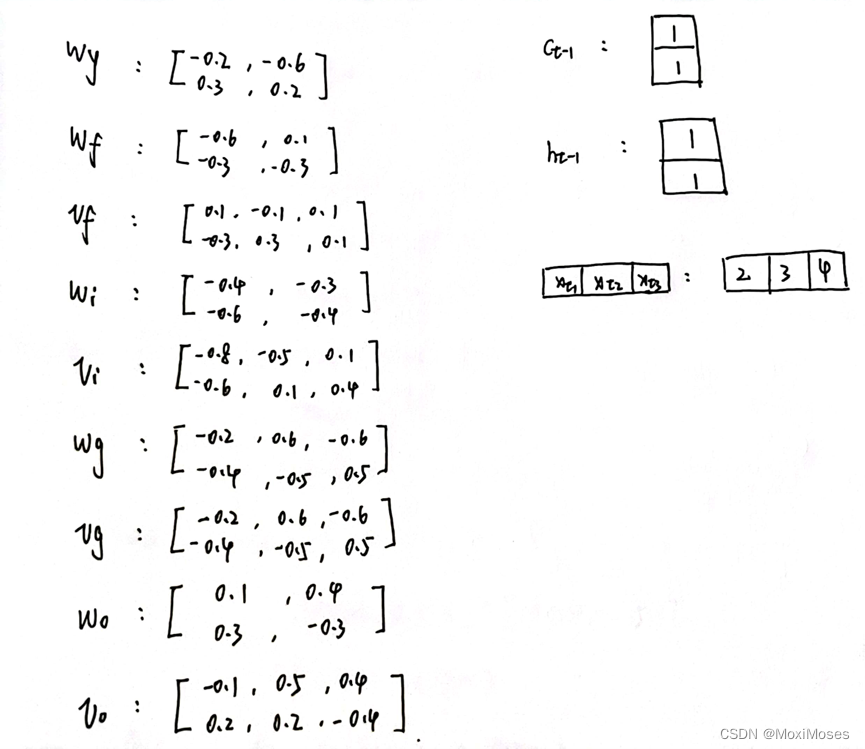 Wy : [ -0.2 , -0.6
0.3 , 0.2 ]
Wf : [ -0.6 , 0.1
-0.3 , -0.3 ]
Vf : [ 0.1 , -0.1 , 0.1
-0.3 , 0.3 , 0.1 ]
Wi : [ -0.4 , -0.3
-0.6 , -0.4 ]
Vi : [ -0.8 , -0.5 , 0.1
-0.6 , 0.1 , 0.4 ]
Wg : [ -0.2 , 0.6 , -0.6
-0.4 , -0.5 , 0.5 ]
Vg : [ -0.2 , 0.6 , -0.6
-0.4 , -0.5 , 0.5 ]
Wo : [ 0.1 , 0.4
0.3 , -0.3 ]
Vo : [ -0.1 , 0.5 , 0.4
0.2 , 0.2 , -0.4 ] .
Ct-1 : 1
1
ht-1 : 1
1
xt1 xt2 xt3 : 2 3 4
CSDN @MoxiMoses